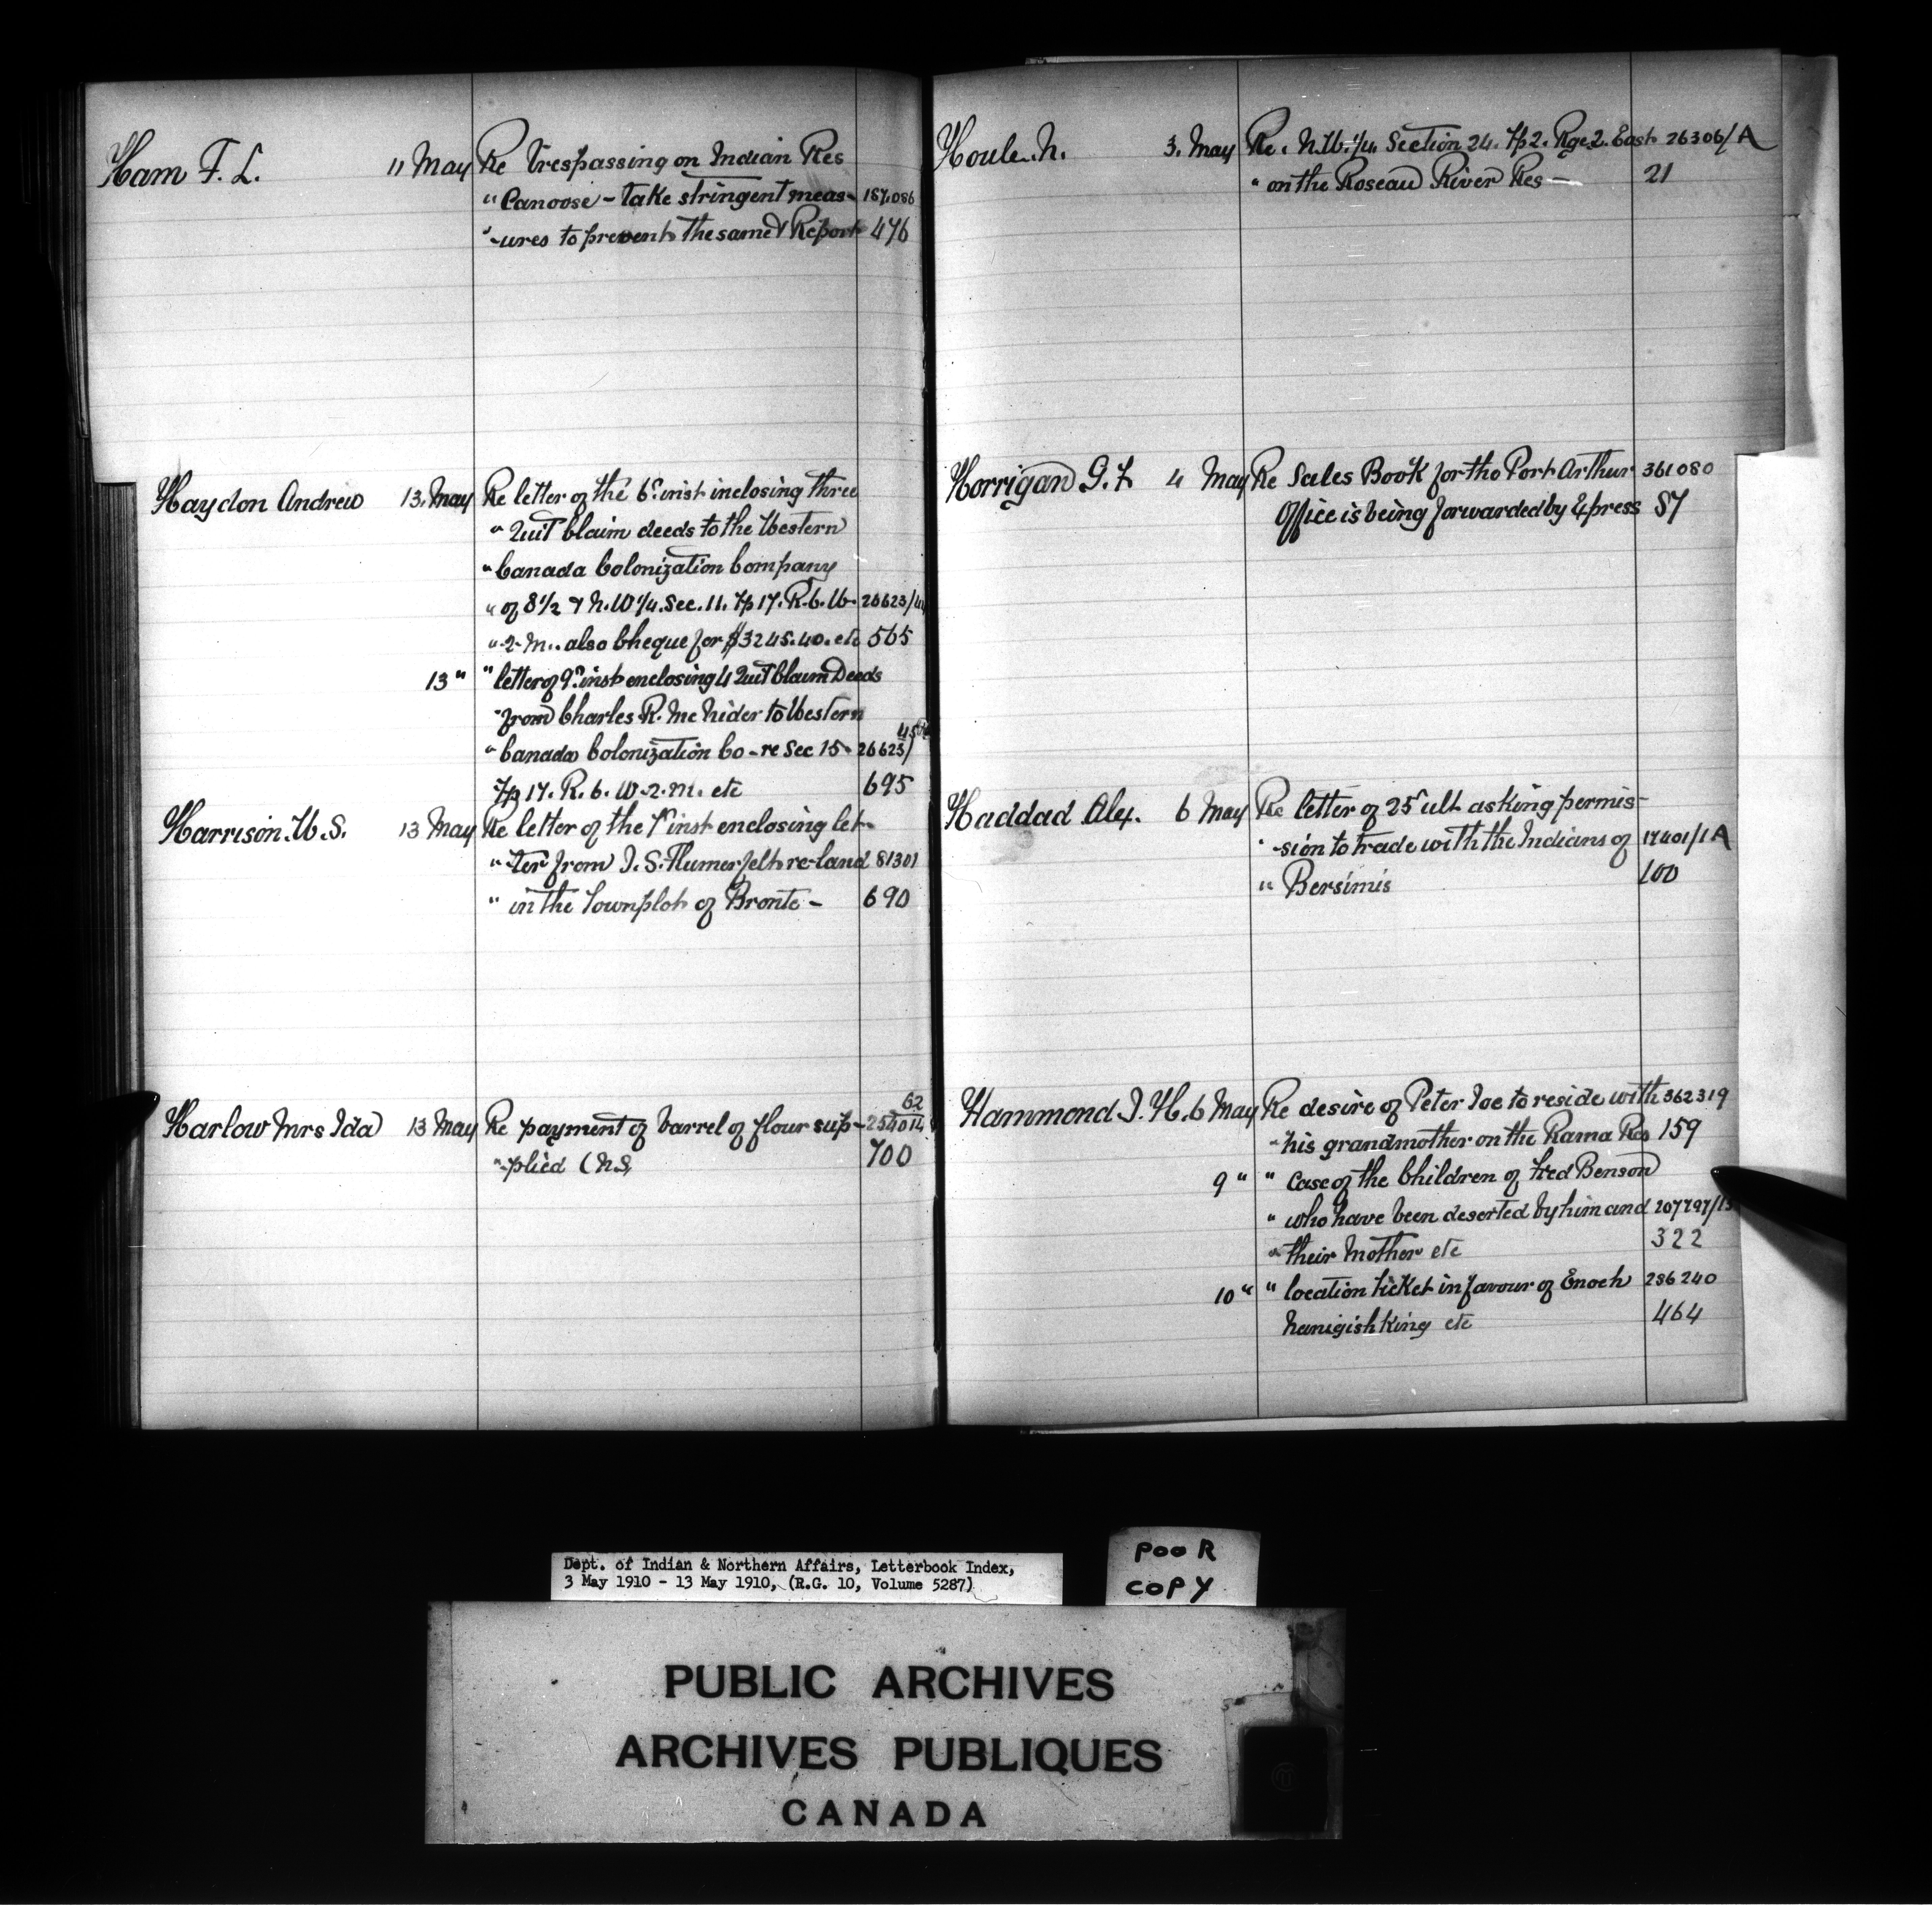 Ham F. L. 11 May Re Trespassing on Indian Res
" Canoose - take stringent meas- 187,086
" -ures to prevent the same & Report 476
Haydon Andrew 13. May Re letter of the 6" inst inclosing three
" Quit Claim deeds to the Western
" Canada Colonization Company
" of S 1/2 & N.W 1/4. Sec. 11. Tp 17. R. 6. W- 26623/
" 2. M.. also Cheque for $3245.40. etc 565
13 " " letter of 9" inst enclosing 4 Quit Claim Deeds
" from Charles R. McNider to Western
" Canada Colonization Co - re Sec 15- 26623/
Tp 17. R. 6. W-2. M. etc 695
Harrison. W. S. 13 May Re letter of the 7" inst enclosing let-
" -ter from J. S. Flumerfelt re-land 81301
" in the Townplot of Bronte - 690
Harlow Mrs Ida 13 May Re payment of barrel of flour sup- 62 254014
" -plied (N.S, 700
Houle. N. 3. May Re. N.W. 1/4. Section 24. Tp 2. Rge. 2. East 26306/A
" on the Roseau River Res - 21
Horrigan G. F. 4 May Re Sales Book for the Port Arthur 361080
Office is being forwarded by Express 87
Haddad Alex. 6 May Re letter of 25" ult asking permis-
" -sion to trade with the Indians of 17401/1A
" Bersimis 100
Hammond J. H. 6 May Re desire of Peter Joe to reside with 362319
" his grandmother on the Rama Res 159
9 " " Case of the Children of Fred Benson
" who have been deserted by him and 207797/
" their Mother etc 322
10 " " location ticket in favour of Enoch 286240
Nanigishking etc 464
Dept. of Indian & Northern Affairs, Letterbook Index,
3 May 1910 - 13 May 1910, (R.G. 10, Volume 5287)
POOR
COPY
PUBLIC ARCHIVES
ARCHIVES PUBLIQUES
CANADA